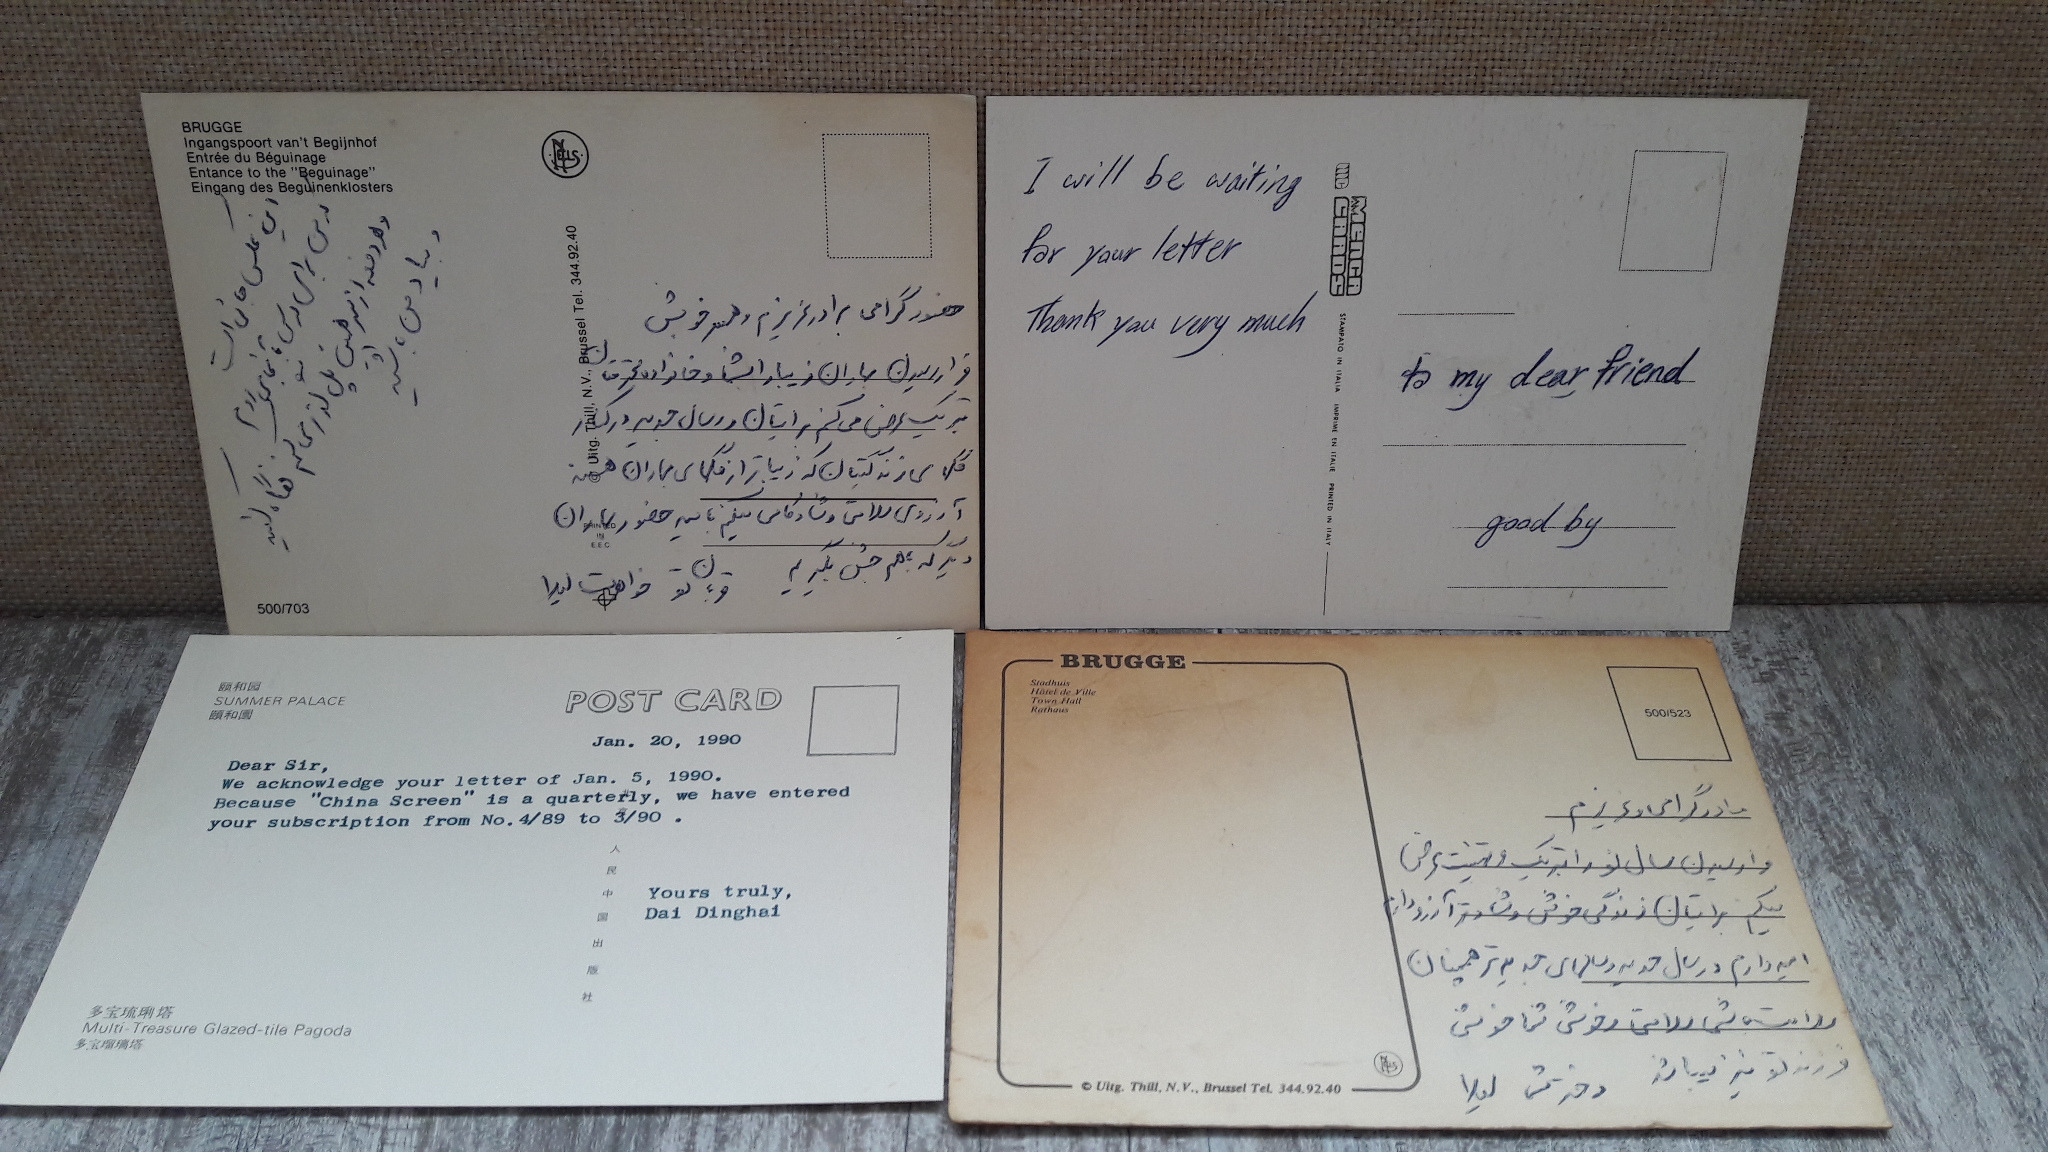 BRUGGE
Ingangspoort van't Begijnhof
Entrée du Béguinage
Entance to the "Beguinage"
Eingang des Beguinenklosters
این عکس جائی است
درس برای درس
می روم
و هر دفعه از
پل گذر می کنم
بیاد من باشید
500/703
© Uitg. Thill, N.V., Brussel Tel. 344.92.40
PRINTED
IN
E.E.C
حضور گرامی برادر عزیزم و همسر خوبش
فرا رسیدن بهاران زیبا را به شما و خانواده محترمتان
تبریک عرض می کنم برایتان در سال جدید در کنار
گلهای زندگیتان که زیباتر از گلهای بهاران هستند
آرزوی سلامتی و شادکامی میکنم بامید حضور بهاران
دیگر که باهم جشن بگیریم
قربانتو خواهرت لیلا
I will be waiting
for your letter
Thank you very much
MC
MENCA
CRAOSS
STAMPATO IN ITALIA IMPRIME EN ITALIE PRINTED IN ITALY
to my dear friend
good by
颐和园
SUMMER PALACE
頤和園
POST CARD
Jan. 20, 1990
Dear Sir,
We acknowledge your letter of Jan. 5, 1990.
Because "China Screen" is a quarterly, we have entered
your subscription from No.4/89 to 3/90 .
Yours truly,
Dai Dinghai
人民中国出版社
多宝琉璃塔
Multi-Treasure Glazed-tile Pagoda
多宝瑠璃塔
BRUGGE
Stadhuis
Hôtel de Ville
Town Hall
Rathaus
500/523
© Uitg. Thill, N.V., Brussel Tel. 344.92.40
مادر گرامی و عزیزم
فرا رسیدن سال نو را تبریک و تهنیت عرض
میکنم برایتان زندگی خوش و شادی آرزو دارم
امیدوارم در سال جدید و سالهای جدیدتر همچنان
سلامت باشی سلامتی و خوشی شما خوشی
فرزندانتو نیز میباشد
دخترت لیلا